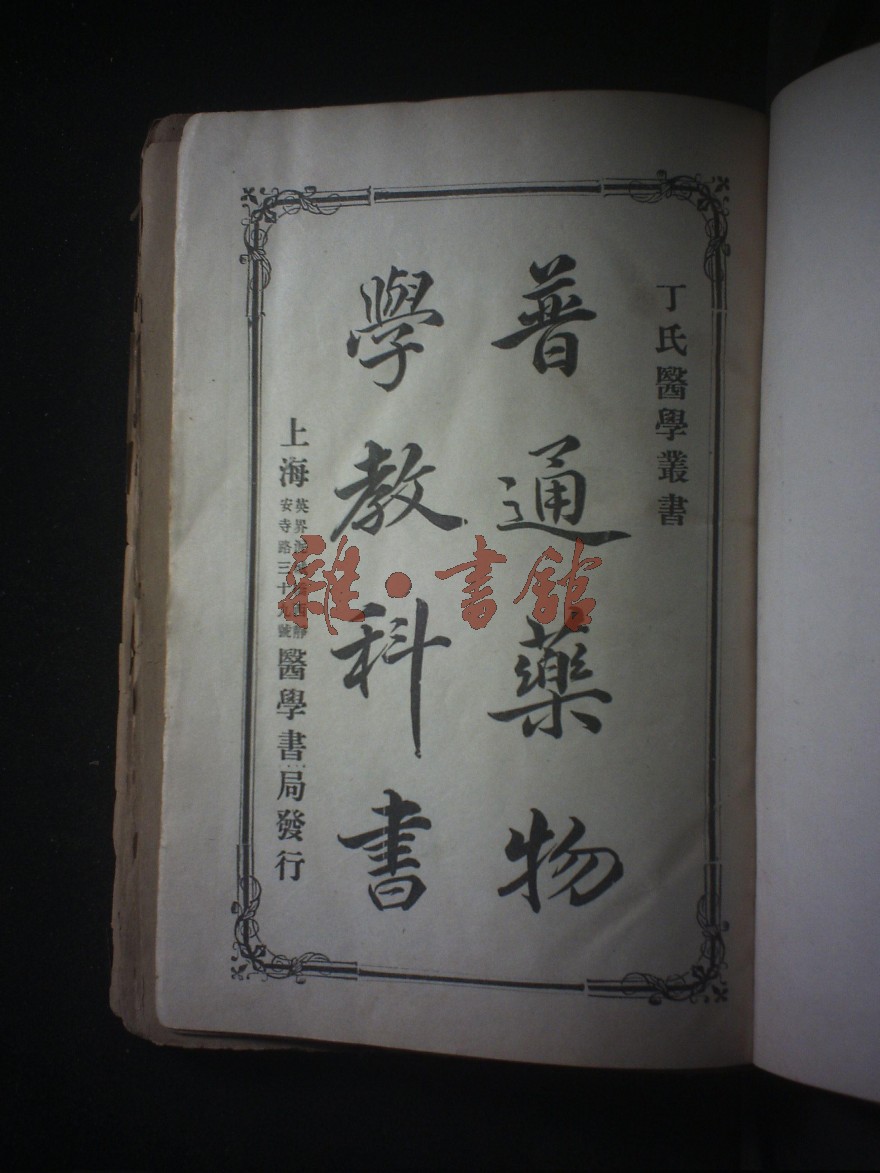 丁氏醫學叢書
普通藥物
學教科書
上海
英界
靜
安寺路三十九號
醫學書局發行
雜·書館